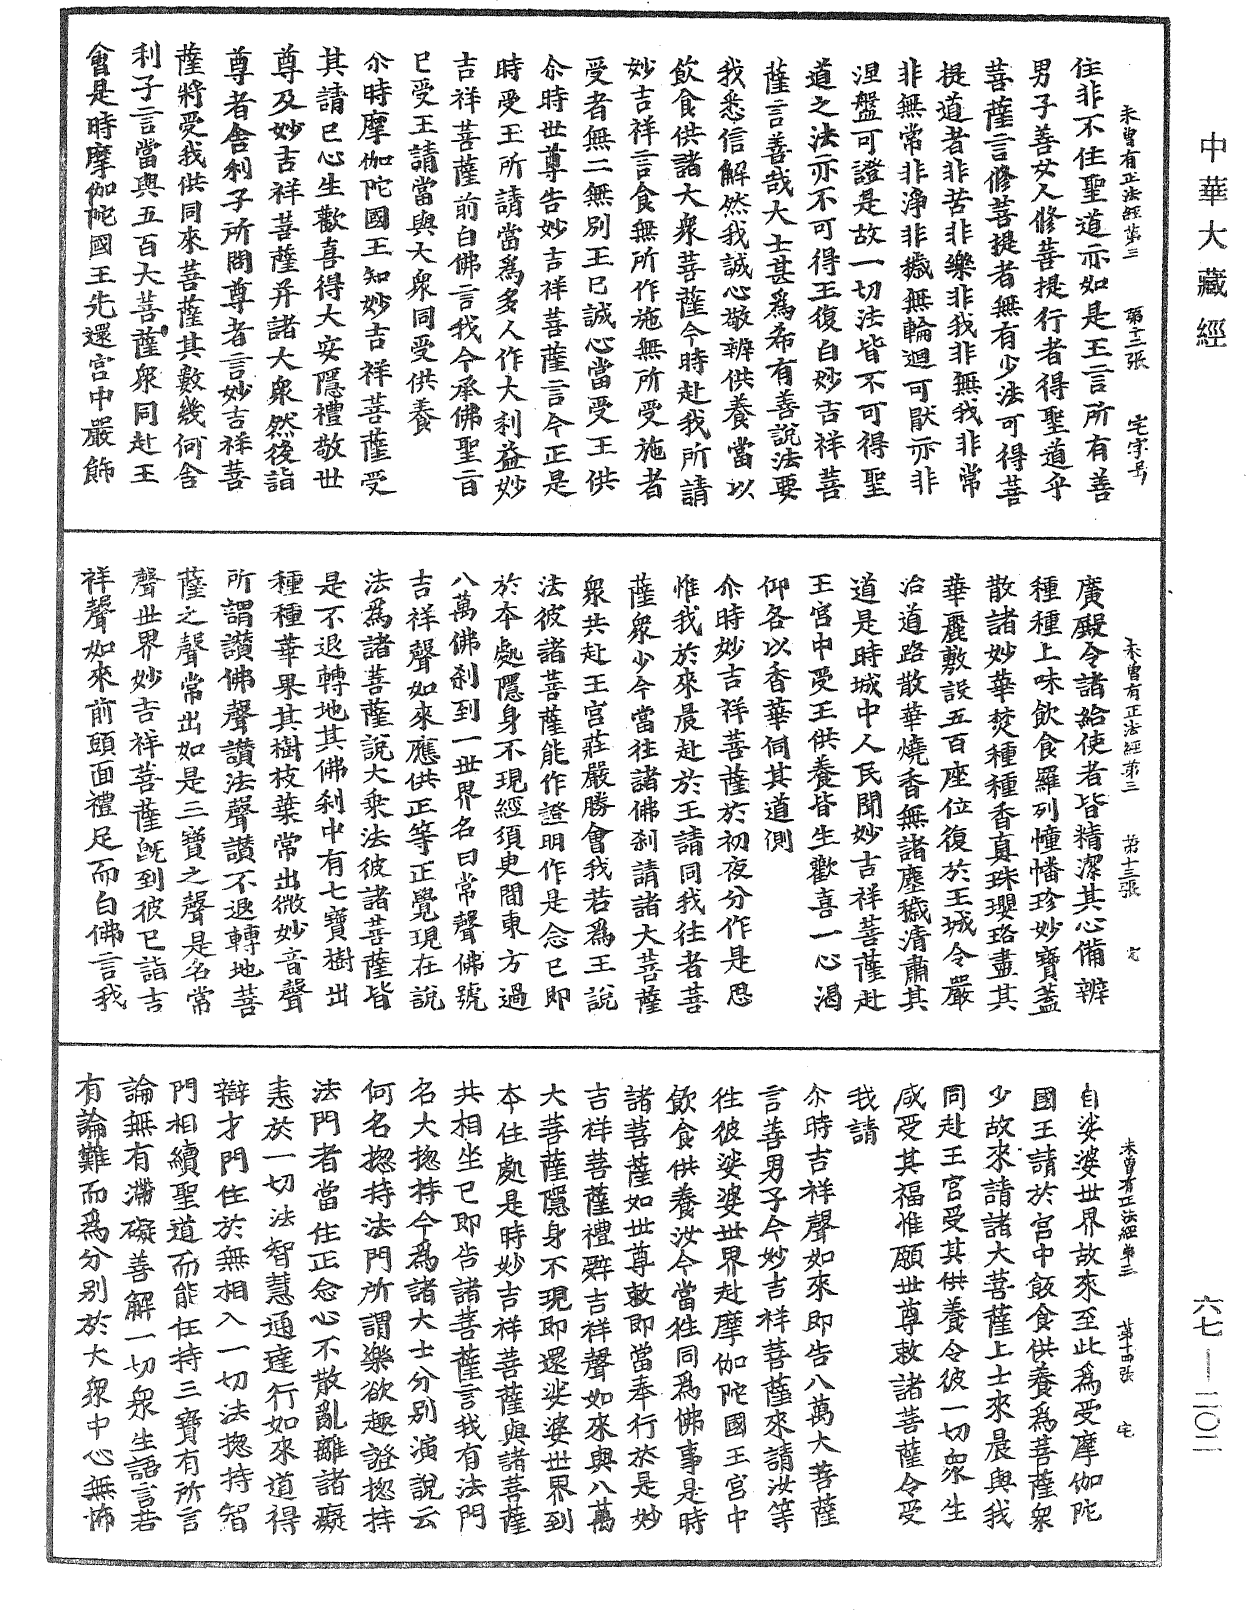 中華大藏經
未曾有正法經第三　第十二張　宅字号
住非不住聖道亦如是王言所有善
男子善女人修菩提行者得聖道乎
菩薩言修菩提者無有少法可得菩
提道者非苦非樂非我非無我非常
非無常非淨非穢無輪迴可猒亦非
涅盤可證是故一切法皆不可得聖
道之法亦不可得王復白妙吉祥菩
薩言善哉大士甚爲希有善說法要
我悉信解然我誠心敬辦供養當以
飲食供諸大衆菩薩今時赴我所請
妙吉祥言食無所作施無所受施者
受者無二無別王已誠心當受王供
尒時世尊告妙吉祥菩薩言今正是
時受王所請當爲多人作大利益妙
吉祥菩薩前白佛言我今承佛聖旨
已受王請當與大衆同受供養
尒時摩伽陀國王知妙吉祥菩薩受
其請已心生歡喜得大安隱禮敬世
尊及妙吉祥菩薩并諸大衆然後詣
尊者舍利子所問尊者言妙吉祥菩
薩將受我供同來菩薩其數幾何舍
利子言當與五百大菩薩衆同赴王
會是時摩伽陀國王先還宮中嚴飾
未曾有正法經第三　第十三張　宅
廣殿令諸給使者皆精潔其心備辦
種種上味飲食羅列幢幡珍妙寶蓋
散諸妙華焚種種香真珠瓔珞盡其
華麗敷設五百座位復於王城令嚴
治道路散華燒香無諸塵穢清肅其
道是時城中人民聞妙吉祥菩薩赴
王宮中受王供養皆生歡喜一心渴
仰各以香華伺其道側
尒時妙吉祥菩薩於初夜分作是思
惟我於來晨赴於王請同我往者菩
薩衆少今當往諸佛刹請諸大菩薩
衆共赴王宮莊嚴勝會我若爲王說
法彼諸菩薩能作證明作是念已即
於本處隱身不現經須臾間東方過
八萬佛刹到一世界名曰常聲佛號
吉祥聲如來應供正等正覺現在說
法爲諸菩薩說大乘法彼諸菩薩皆
是不退轉地其佛刹中有七寶樹出
種種華果其樹枝葉常出微妙音聲
所謂讚佛聲讚法聲讚不退轉地菩
薩之聲常出如是三寶之聲是名常
聲世界妙吉祥菩薩旣到彼已詣吉
祥聲如來前頭面禮足而白佛言我
未曾有正法經第三　第十四張　宅
自娑婆世界故來至此爲受摩伽陀
國王請於宮中飯食供養爲菩薩衆
少故來請諸大菩薩上士來晨與我
同赴王宮受其供養令彼一切衆生
咸受其福惟願世尊敕諸菩薩令受
我請
尒時吉祥聲如來即告八萬大菩薩
言善男子今妙吉祥菩薩來請汝等
往彼娑婆世界赴摩伽陀國王宮中
飲食供養汝今當往同爲佛事是時
諸菩薩如世尊敕即當奉行於是妙
吉祥菩薩禮辭吉祥聲如來與八萬
大菩薩隱身不現即還娑婆世界到
本住處是時妙吉祥菩薩與諸菩薩
共相坐已即告諸菩薩言我有法門
名大揔持今爲諸大士分別演說云
何名揔持法門所謂樂欲趣證揔持
法門者當住正念心不散亂離諸癡
恚於一切法智慧通達行如來道得
辯才門住於無相入一切法揔持智
門相續聖道而能任持三寶有所言
論無有滯礙善解一切衆生語言若
有論難而爲分別於大衆中心無怖
六七—二〇二